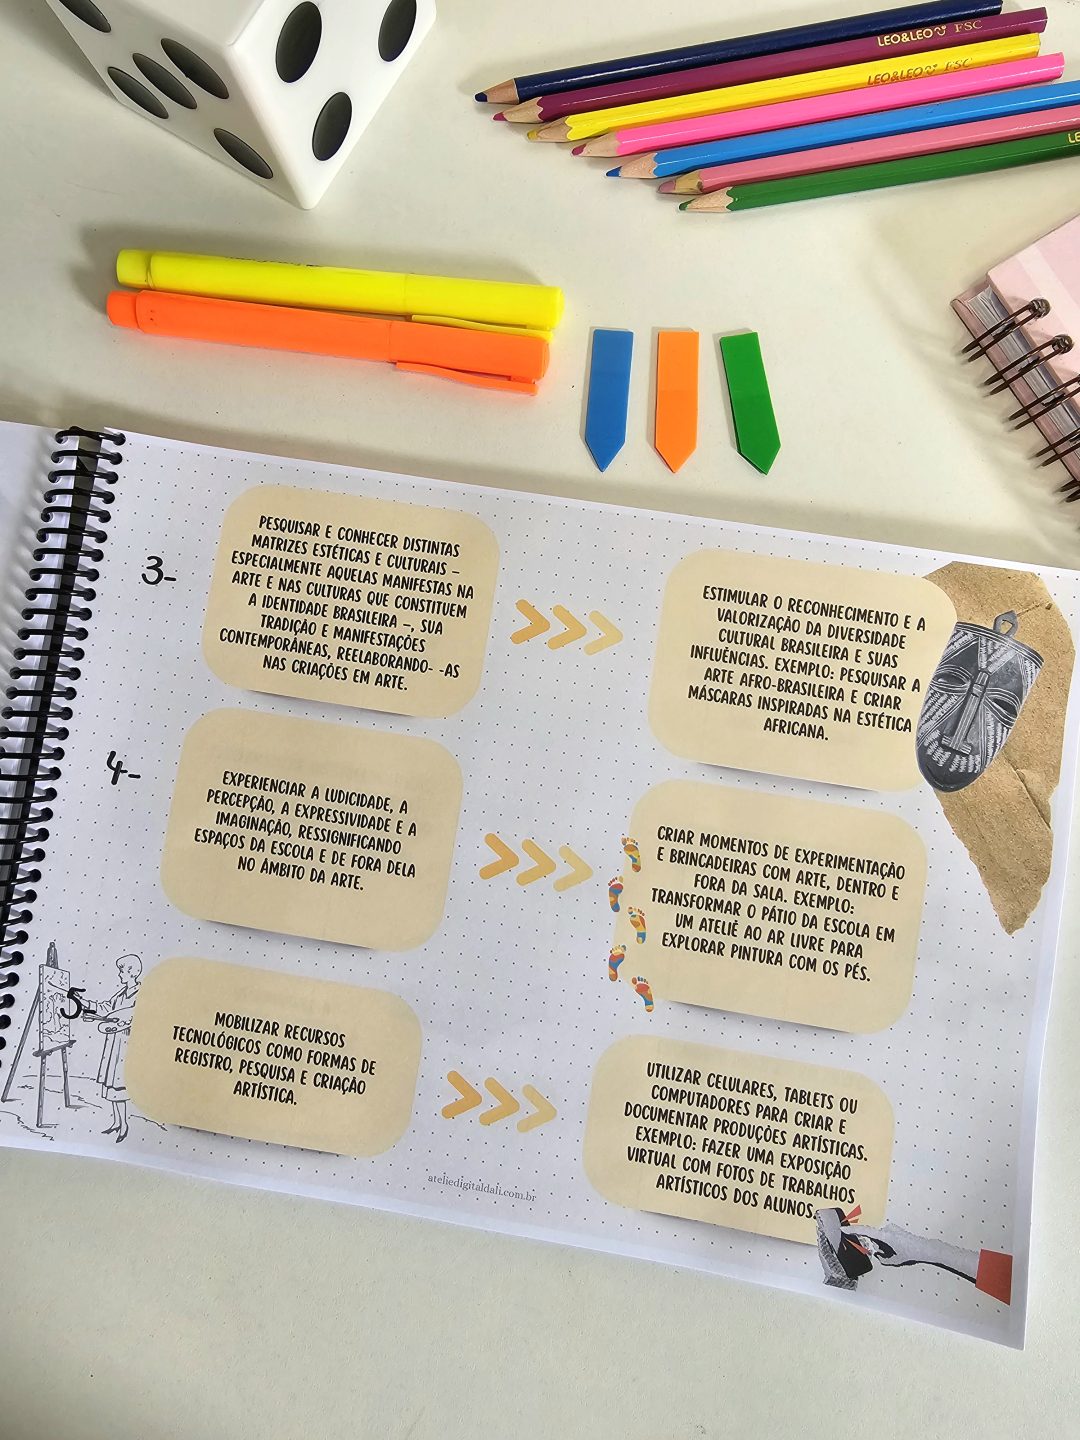 LEO&LEO FSC
LEO&LEO FSC
3-
PESQUISAR E CONHECER DISTINTAS
MATRIZES ESTÉTICAS E CULTURAIS –
ESPECIALMENTE AQUELAS MANIFESTAS NA
ARTE E NAS CULTURAS QUE CONSTITUEM
A IDENTIDADE BRASILEIRA –, SUA
TRADIÇÃO E MANIFESTAÇÕES
CONTEMPORÂNEAS, REELABORANDO- -AS
NAS CRIAÇÕES EM ARTE.
ESTIMULAR O RECONHECIMENTO E A
VALORIZAÇÃO DA DIVERSIDADE
CULTURAL BRASILEIRA E SUAS
INFLUÊNCIAS. EXEMPLO: PESQUISAR A
ARTE AFRO-BRASILEIRA E CRIAR
MÁSCARAS INSPIRADAS NA ESTÉTICA
AFRICANA.
4-
EXPERIENCIAR A LUDICIDADE, A
PERCEPÇÃO, A EXPRESSIVIDADE E A
IMAGINAÇÃO, RESSIGNIFICANDO
ESPAÇOS DA ESCOLA E DE FORA DELA
NO ÂMBITO DA ARTE.
CRIAR MOMENTOS DE EXPERIMENTAÇÃO
E BRINCADEIRAS COM ARTE, DENTRO E
FORA DA SALA. EXEMPLO:
TRANSFORMAR O PÁTIO DA ESCOLA EM
UM ATELIÊ AO AR LIVRE PARA
EXPLORAR PINTURA COM OS PÉS.
5-
MOBILIZAR RECURSOS
TECNOLÓGICOS COMO FORMAS DE
REGISTRO, PESQUISA E CRIAÇÃO
ARTÍSTICA.
UTILIZAR CELULARES, TABLETS OU
COMPUTADORES PARA CRIAR E
DOCUMENTAR PRODUÇÕES ARTÍSTICAS.
EXEMPLO: FAZER UMA EXPOSIÇÃO
VIRTUAL COM FOTOS DE TRABALHOS
ARTÍSTICOS DOS ALUNOS.
ateliedigitaldali.com.br